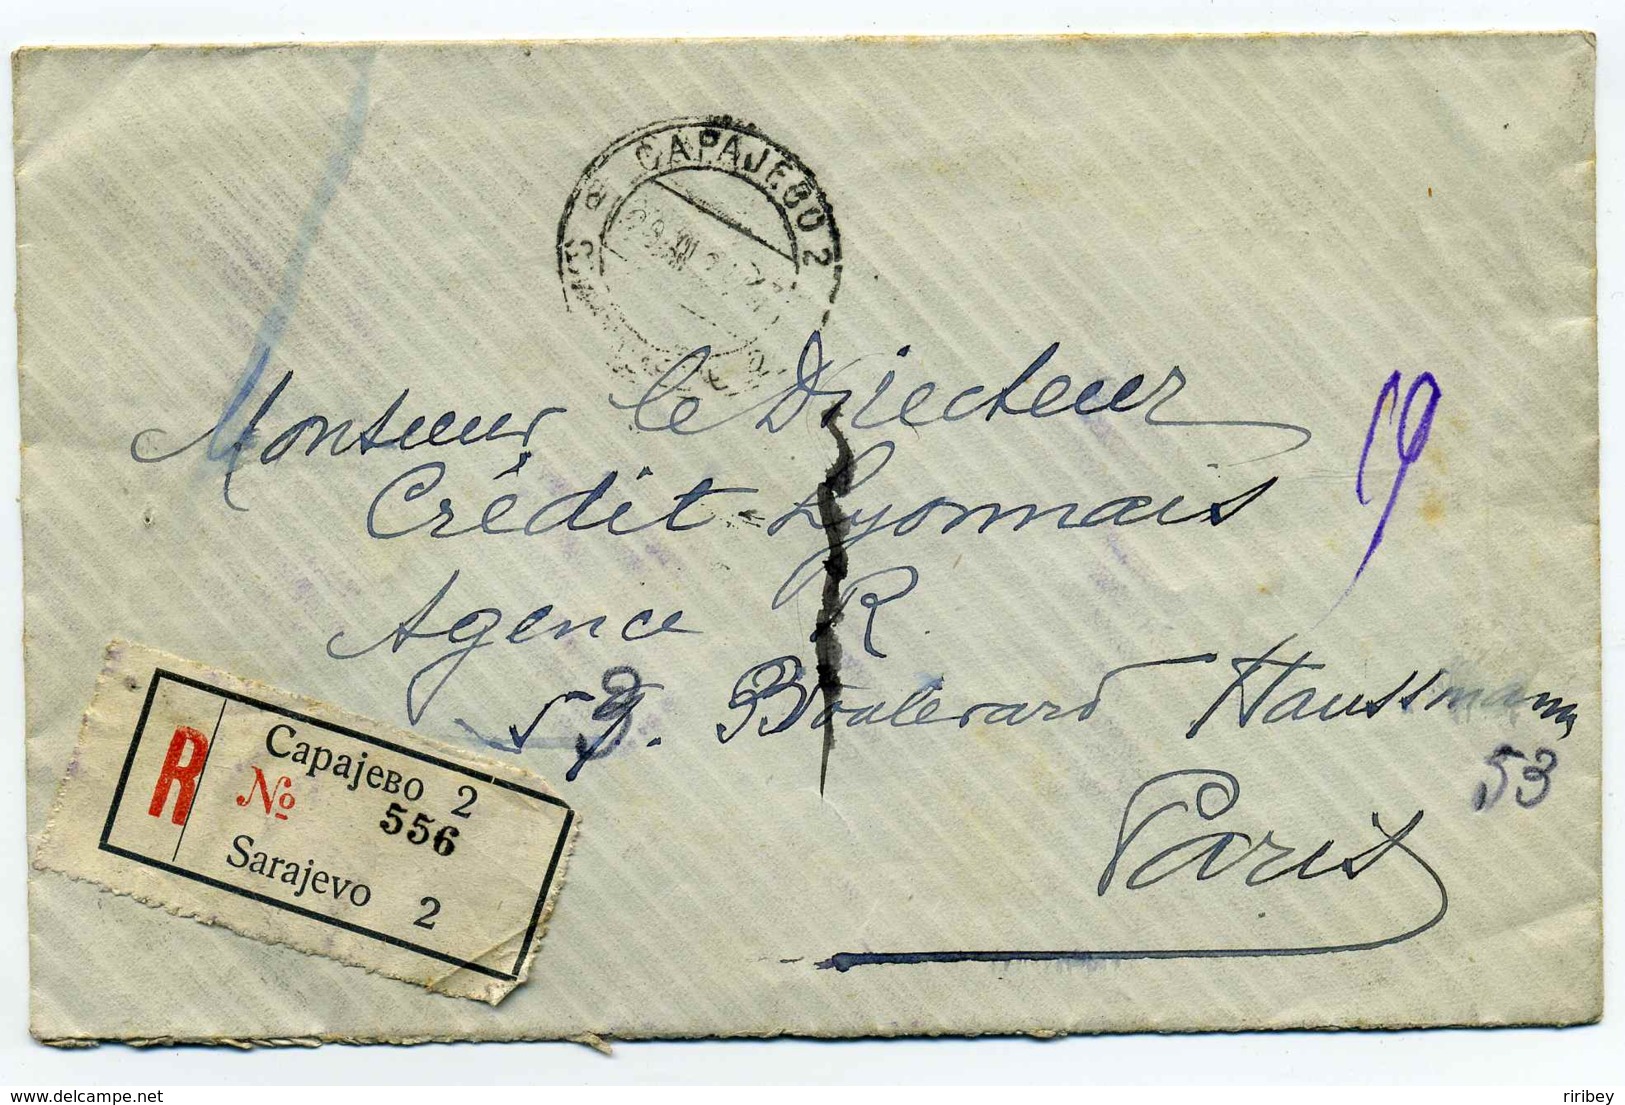 САРАЈЕВО 2
Monsieur le Directeur
Crédit Lyonnais
Agence R
53. Boulevard Haussmann
53
Paris
R
Сарајево 2
№ 556
Sarajevo 2
riribey